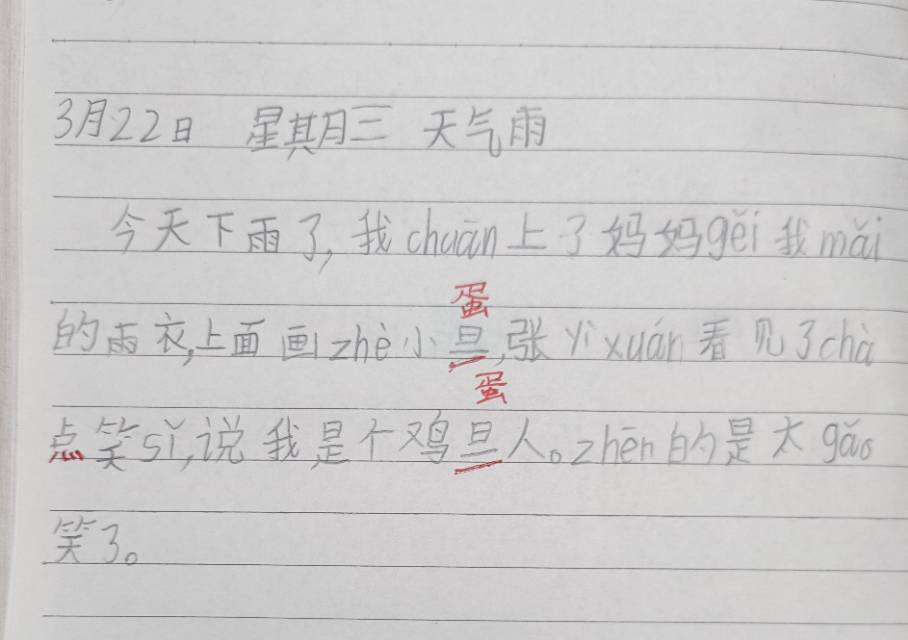 3月22日 星期三 天气雨
今天下雨了,我chuān上了妈妈gěi我mǎi
蛋
的雨衣,上面画zhè小旦,张yìxuán看见了chà
蛋
点笑sǐ,说我是个鸡旦人。zhēn的是太gǎo
笑了。